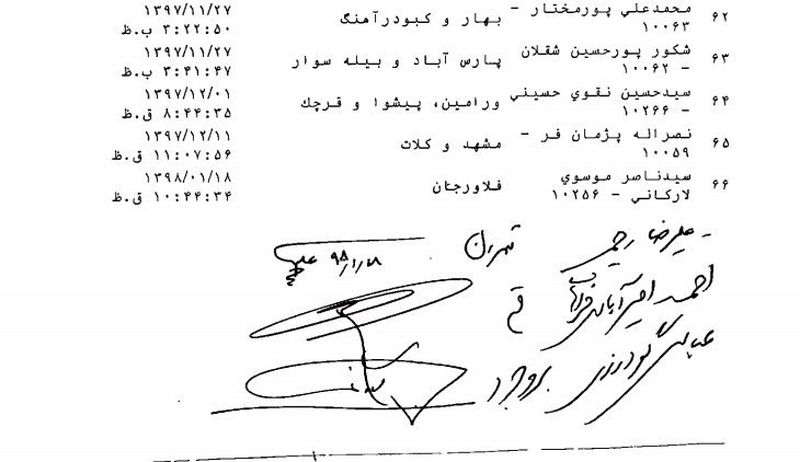 ۶۲ محمدعلي پورمختار - ۱۰۰۶۳ بهار و كبودرآهنگ ۱۳۹۷/۱۱/۲۷ ۳:۲۲:۵۰ ب.ظ
۶۳ شكور پورحسين شقلان - ۱۰۰۶۲ پارس آباد و بيله سوار ۱۳۹۷/۱۱/۲۷ ۳:۴۱:۴۷ ب.ظ
۶۴ سيدحسين نقوي حسيني - ۱۰۲۶۶ ورامين، پيشوا و قرچك ۱۳۹۷/۱۲/۰۱ ۸:۴۴:۳۵ ق.ظ
۶۵ نصراله پژمان فر - ۱۰۰۵۹ مشهد و كلات ۱۳۹۷/۱۲/۱۱ ۱۱:۰۷:۵۶ ق.ظ
۶۶ سيدناصر موسوي لاركاني - ۱۰۲۵۶ فلاورجان ۱۳۹۸/۰۱/۱۸ ۱۰:۴۴:۳۴ ق.ظ
- عليرضا رحيمی تهران
احمد اميرآبادی فراهانی قم
عباس گودرزی بروجرد